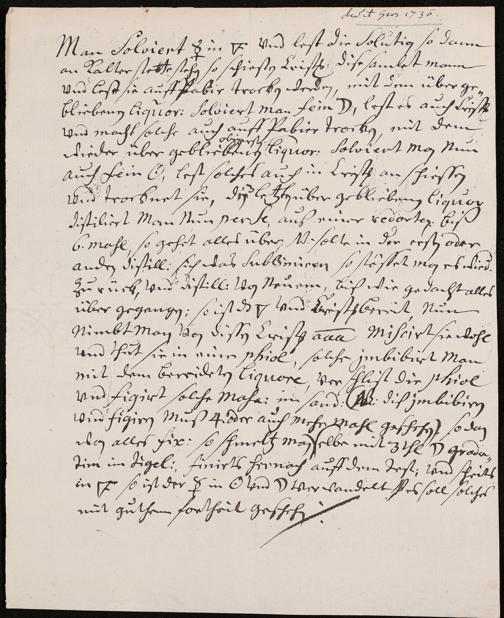 dedit Gros 1736.
Man Solviert ☿ in 🜅 Und lest die Solutig so dann
an Kalter stette stehen so schiessen Cristh: dise samlet mann
Und lest sie auff Papir trocken werden, mit dem über ge-
bliebenen liquor: Solviert man fein ☽, lest es auch Cristh
und macht solche auch auff Papier trocken, mit dem
wieder über gebliebenen liquor: Solviert man Nun
auch fein ☉, lest solches auch in Cristh an schiessen
Und trocknet sie, die letzt über gebliebenen liquor
distilirt Man Nun per se, aus einer redorten biss
6. mahl so gehet alles über, N: solte in der ersten oder
andern distill: sich was Sublimiren so stösset man es wieder
Zu rück, Und distill: Von Neuem, biss wie gedacht alles
über gegangen; so ist das 🜅 Und Cristh bereit, Nun
Nimbt Man Von dissen Cristh aaaa Miscirt sie wohl
Und thut sie in eine phiol, solche imbibirt Man
mit dem bereideten liquore, Ver schlist die phiol
Und figirt solche Massa: im sand: diss imbibiren
Und figiren Muss 4. oder auch mehr mahl geschehen, so dan
alles fix: so schmeltz man selbe mit 3 thl ☽ grada-
tim im tigel:, finirts hernach auff dem Test; Und scheids
in 🜅 so ist der ☿ in ☉ Und ☽ Verwandelt, es soll solches
mit guthem fortheil geschehen